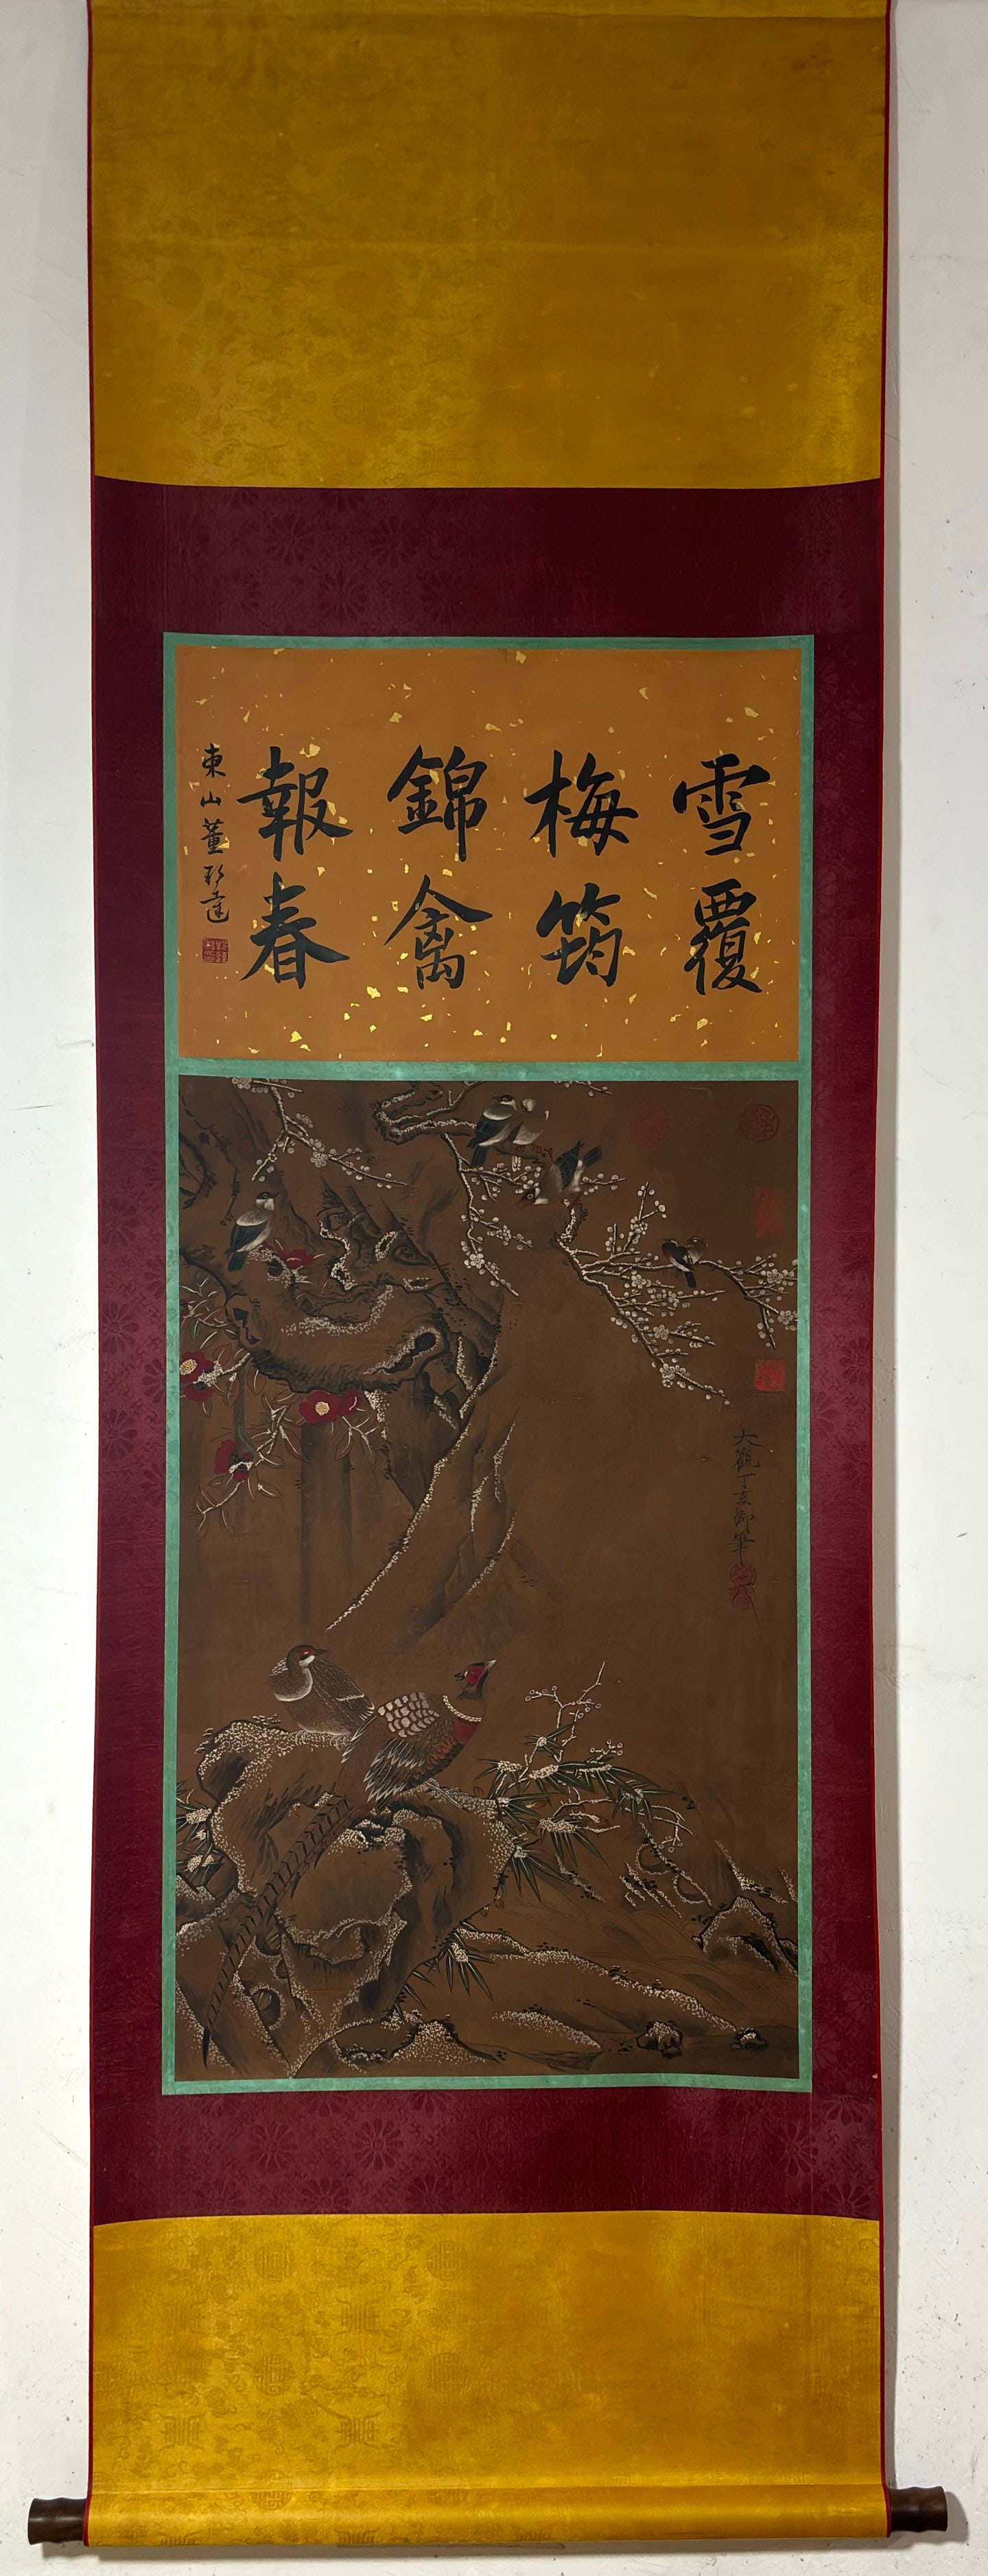 雪覆
梅筠
錦禽
報春
東山董邦達
大觀丁亥御筆